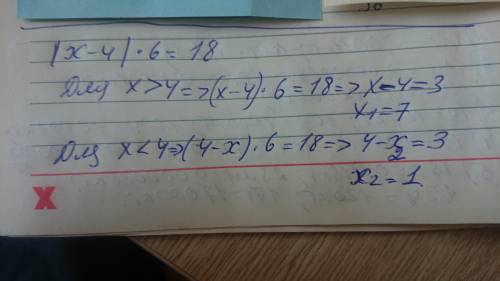 |x-4|·6=18
Для x>4=>(x-4)·6=18=>x-4=3
x1=7
Для x<4=>(4-x)·6=18=>4-x=3
x2=1
X